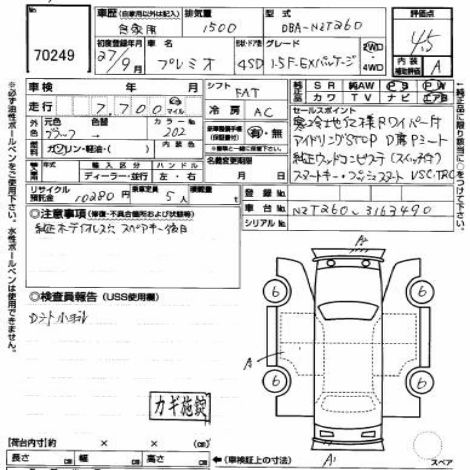 70249
車歴(自家用以外は記入) 自家用
排気量 1500
型式 DBA-NZT260
初度登録年月 27/9月
車名 プレミオ
形状・ドア数 4SD
グレード 1.5F-EXパッケージ
2WD 4WD
評価点 4.5
内装補助評価 A
車検 年 月
シフト FAT
走行 7,700 km マイル
冷房 AC
純正 SR 純AW PS PW
カワ TV ナビ エアB
元色 ブラック
色替
カラーNo 202
ガソリン・軽油・
輸入区分
ハンドル
ディーラー・並行
左・右
新車整備手帳(保証書) 有・無
名義変更期限 月 日
セールスポイント
寒冷地仕様 Rワイパー付
アイドリングSTOP D席Pシート
スマートキー・プッシュスタート VSC・TRC
リサイクル預託金 10280円
乗車定員 5人
積載量 t
登録No.
車台No. NZT260-3163490
シリアルNo.
◎注意事項(修復・不具合個所および状態等)
純正ホディオレス スペアキー後日
◎検査員報告(USS使用欄)
Dシート小コゲ
カギ施錠
※必ず油性ボールペンをご使用下さい。水性ボールペンは使用できません。
A2
6 6
A
6 6
A1
スペア
【荷台内寸】約 × × cm
長さ cm 幅 cm 高さ cm
(車検証上の寸法)